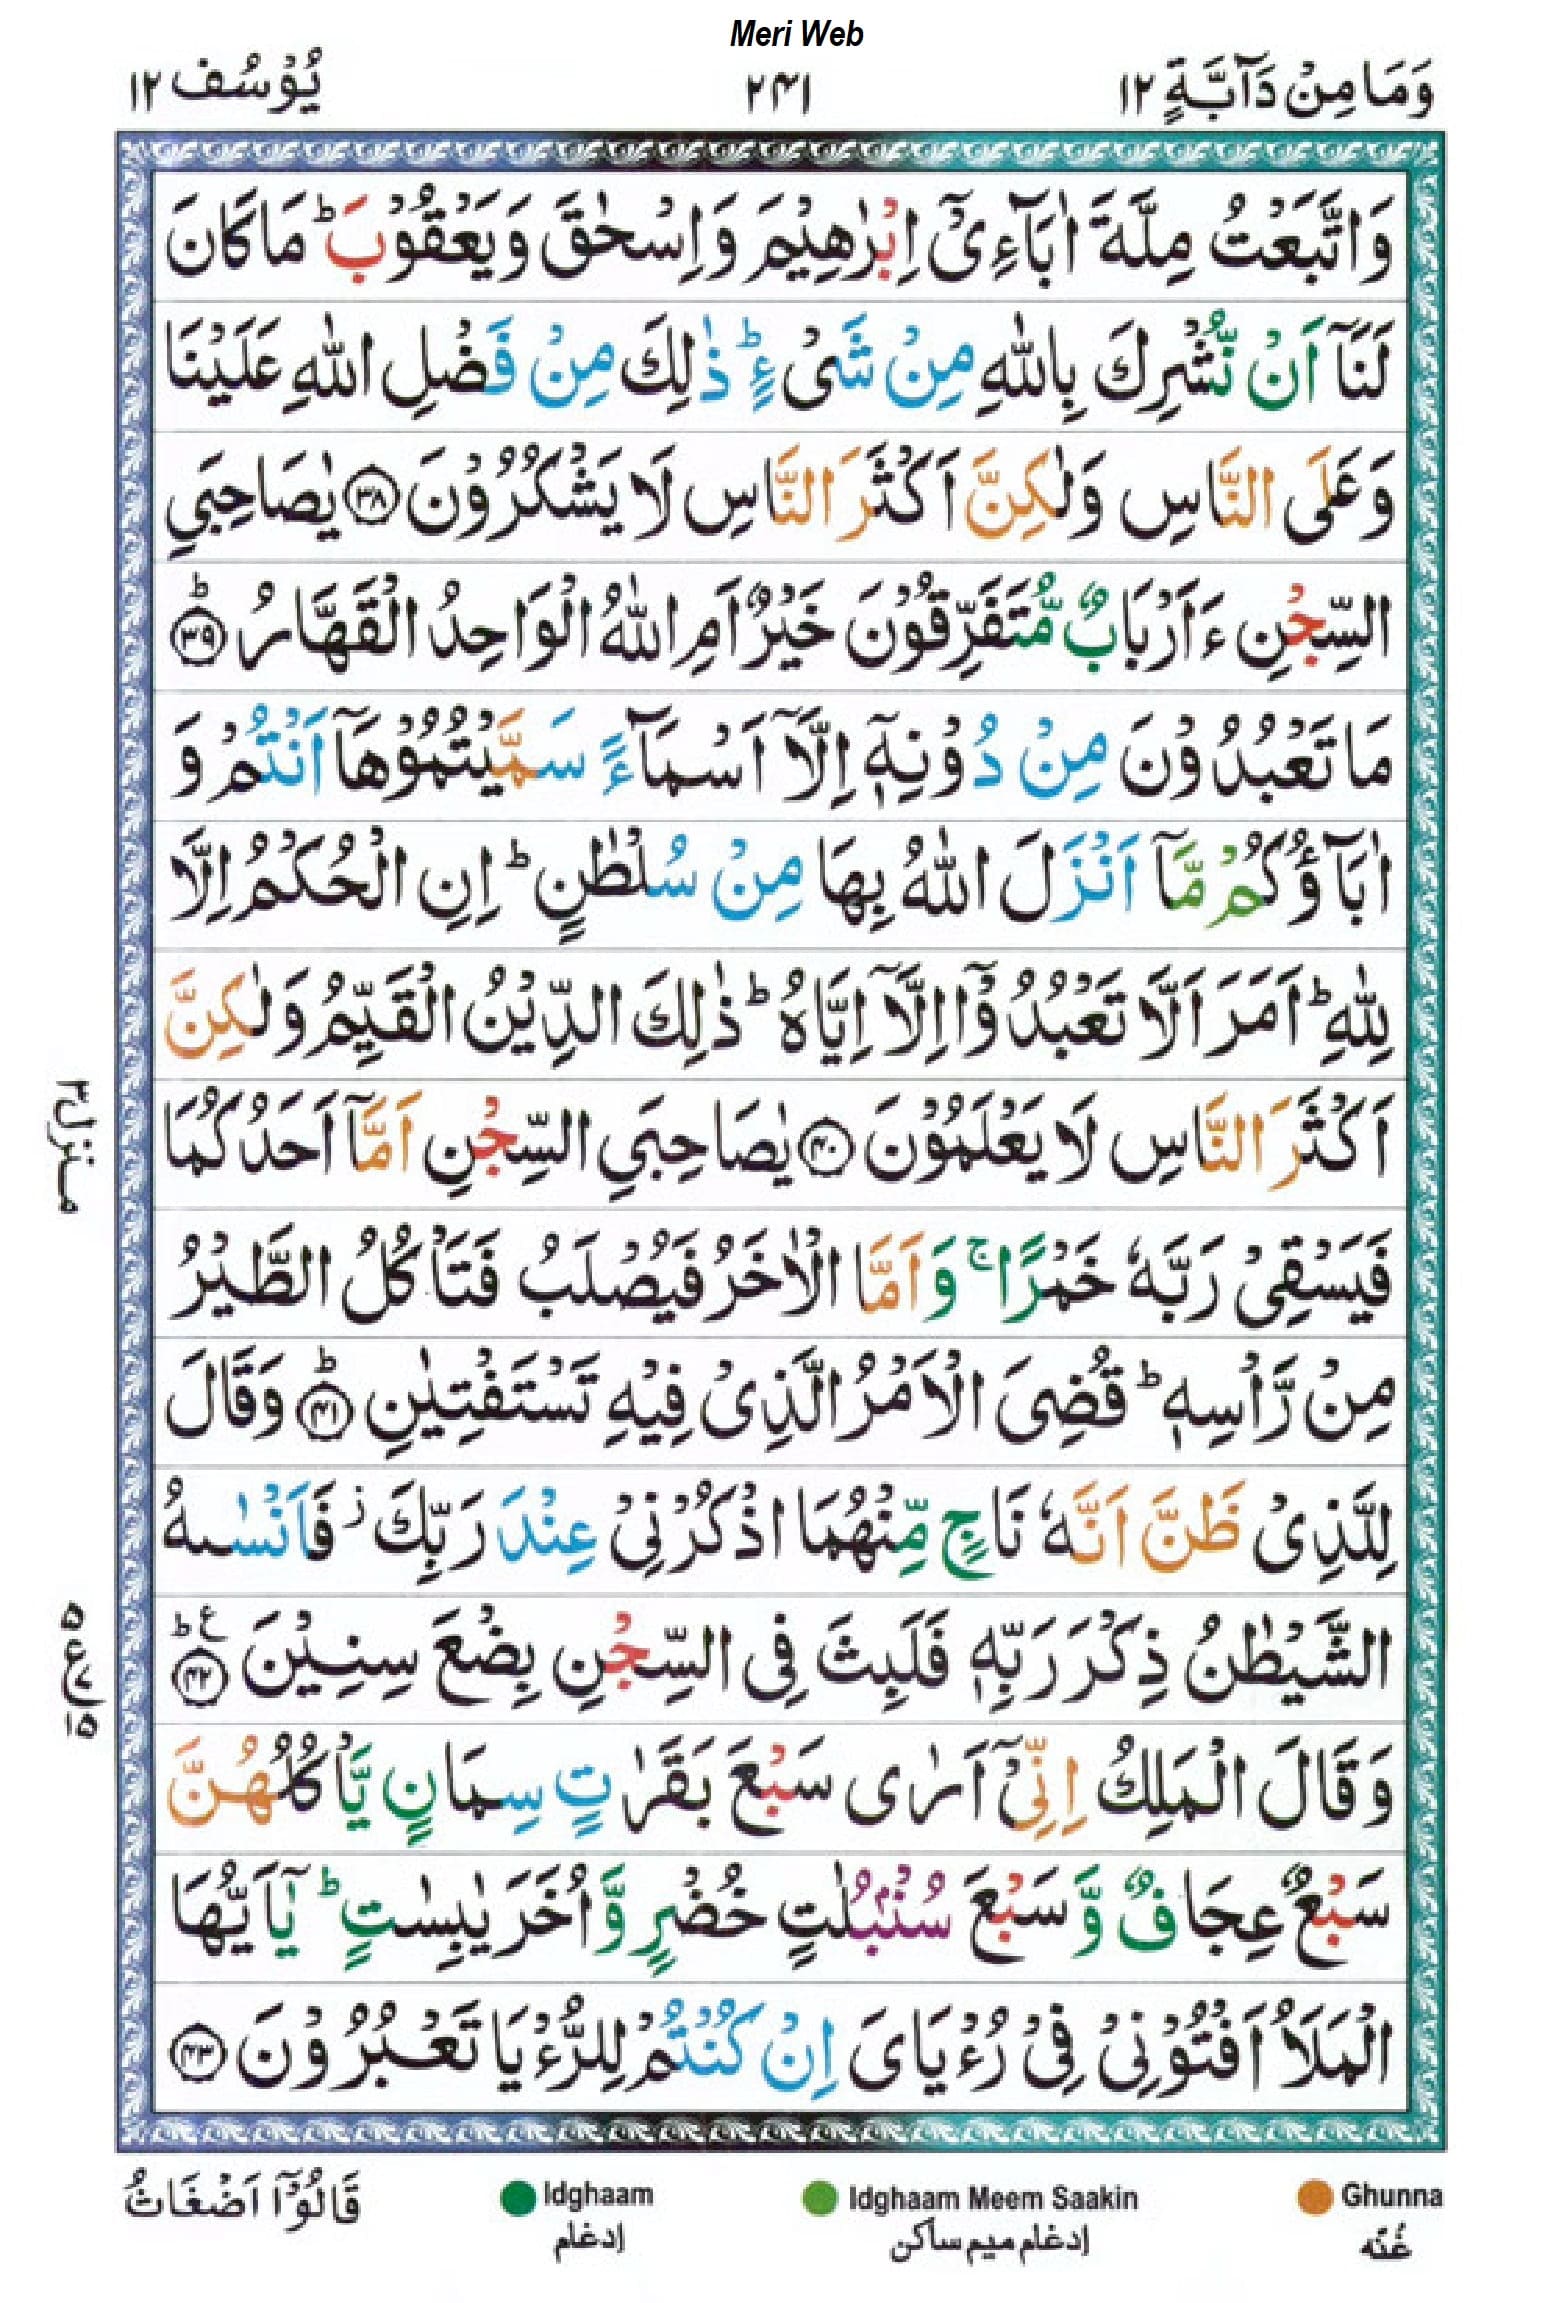 Meri Web
وَمَا مِنْ دَآبَّةٍ ١٢
٢۴١
يُوْسُف ١٢
وَاتَّبَعْتُ مِلَّةَ اٰبَآءِىْٓ اِبْرٰهِيْمَ وَاِسْحٰقَ وَيَعْقُوْبَ ؕ مَا كَانَ
لَنَآ اَنْ نُّشْرِكَ بِاللّٰهِ مِنْ شَىْءٍ ؕ ذٰلِكَ مِنْ فَضْلِ اللّٰهِ عَلَيْنَا
وَعَلَى النَّاسِ وَلٰكِنَّ اَكْثَرَ النَّاسِ لَا يَشْكُرُوْنَ ﴿۳۸﴾ يٰصَاحِبَىِ
السِّجْنِ ءَاَرْبَابٌ مُّتَفَرِّقُوْنَ خَيْرٌ اَمِ اللّٰهُ الْوَاحِدُ الْقَهَّارُ ؕ ﴿۳۹﴾
مَا تَعْبُدُوْنَ مِنْ دُوْنِهٖٓ اِلَّآ اَسْمَآءً سَمَّيْتُمُوْهَآ اَنْتُمْ وَ
اٰبَآؤُكُمْ مَّآ اَنْزَلَ اللّٰهُ بِهَا مِنْ سُلْطٰنٍ ؕ اِنِ الْحُكْمُ اِلَّا
لِلّٰهِ ؕ اَمَرَ اَلَّا تَعْبُدُوْٓا اِلَّآ اِيَّاهُ ؕ ذٰلِكَ الدِّيْنُ الْقَيِّمُ وَلٰكِنَّ
اَكْثَرَ النَّاسِ لَا يَعْلَمُوْنَ ﴿۴۰﴾ يٰصَاحِبَىِ السِّجْنِ اَمَّآ اَحَدُكُمَا
فَيَسْقِىْ رَبَّهٗ خَمْرًا ۚ وَاَمَّا الْاٰخَرُ فَيُصْلَبُ فَتَاْكُلُ الطَّيْرُ
مِنْ رَّاْسِهٖ ؕ قُضِىَ الْاَمْرُ الَّذِىْ فِيْهِ تَسْتَفْتِيٰنِ ؕ ﴿۴۱﴾ وَقَالَ
لِلَّذِىْ ظَنَّ اَنَّهٗ نَاجٍ مِّنْهُمَا اذْكُرْنِىْ عِنْدَ رَبِّكَ ز فَاَنْسٰىهُ
الشَّيْطٰنُ ذِكْرَ رَبِّهٖ فَلَبِثَ فِى السِّجْنِ بِضْعَ سِنِيْنَ ؕ ع ﴿۴۲﴾
وَقَالَ الْمَلِكُ اِنِّىْٓ اَرٰى سَبْعَ بَقَرٰتٍ سِمَانٍ يَّاْكُلُهُنَّ
سَبْعٌ عِجَافٌ وَّسَبْعَ سُنْۢبُلٰتٍ خُضْرٍ وَّاُخَرَ يٰبِسٰتٍ ؕ يٰٓاَيُّهَا
الْمَلَاُ اَفْتُوْنِىْ فِىْ رُءْيَاىَ اِنْ كُنْتُمْ لِلرُّءْيَا تَعْبُرُوْنَ ﴿۴۳﴾
منزل ۳
Ghunna
غُنّه
Idghaam Meem Saakin
إدغام ميم ساكن
Idghaam
إدغام
قَالُوْٓا اَضْغَاثُ